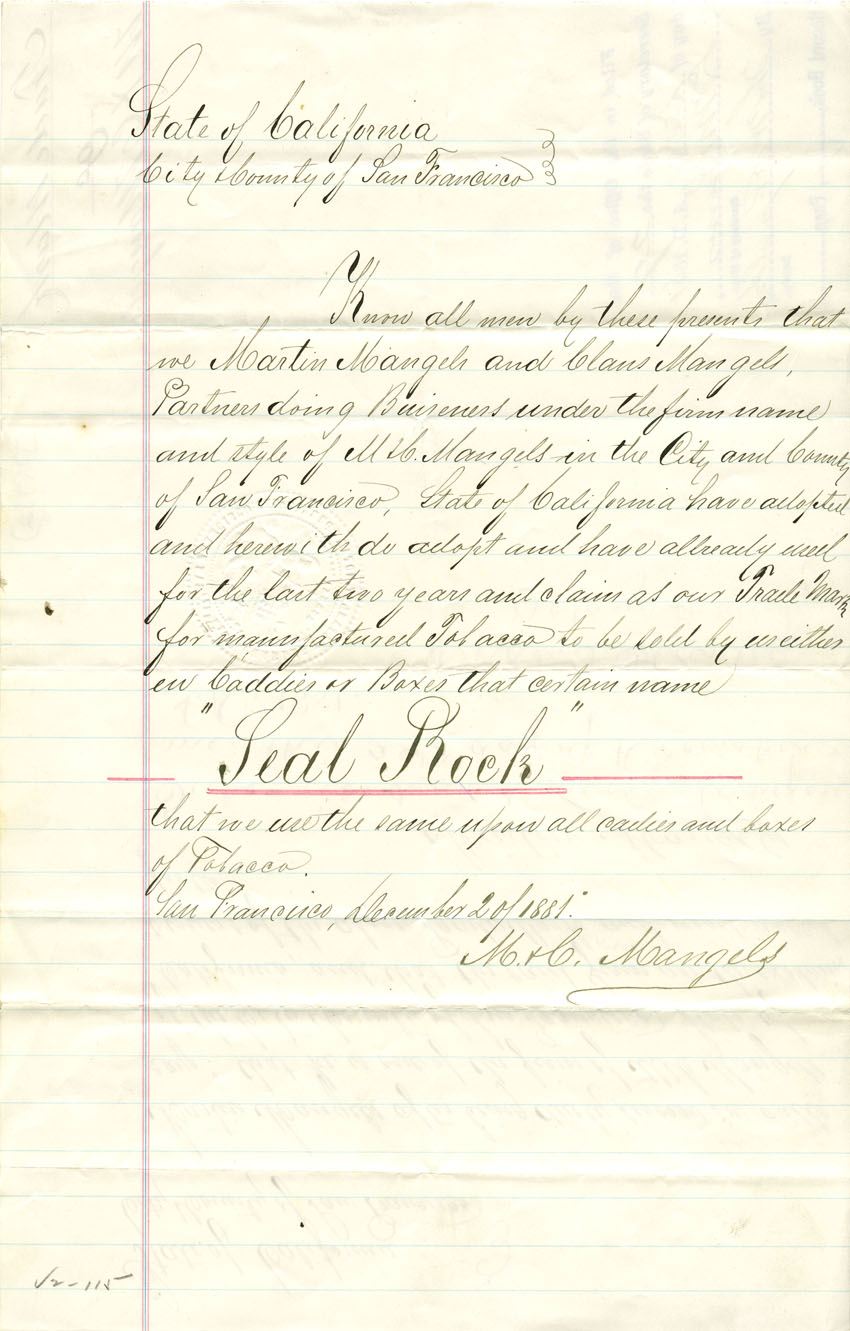 State of California
City & County of San Francisco
Know all men by these presents that
we Martin Mangels and Claus Mangels,
Partners doing Buiseness under the firm name
and style of M & C. Mangels in the City and County
of San Francisco, State of California have adopted
and herewith do adopt and have allready used
for the last two years and claim as our Trade Mark
for manufactured Tobacco to be sold by us either
en Caddies or Boxes that certain name
"Seal Rock"
that we use the same upon all cadies and boxes
of Tobacco.
San Francisco, December 2 of 1881.
M. & C. Mangels
V2-115